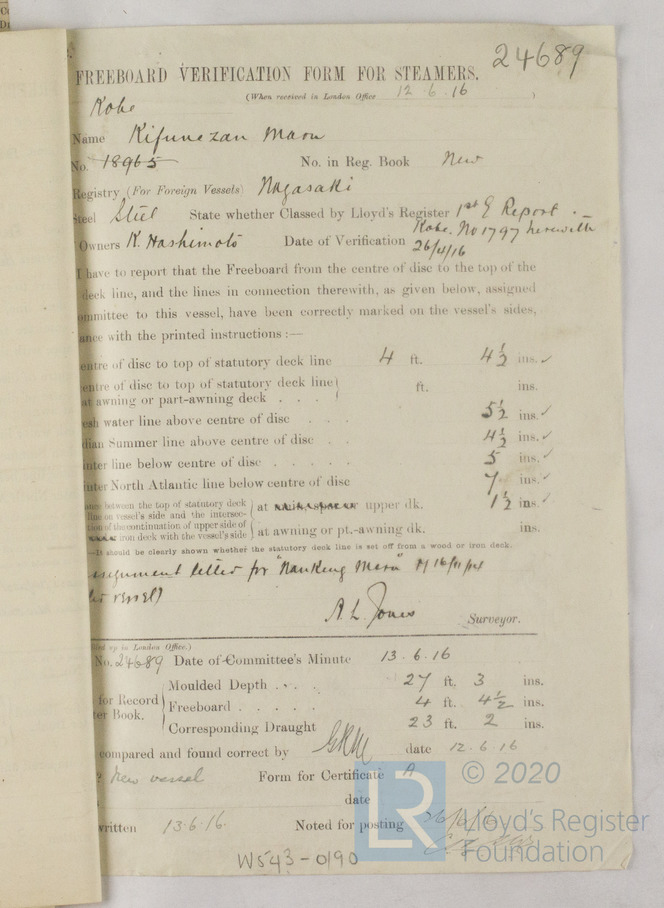 24689
FREEBOARD VERIFICATION FORM FOR STEAMERS.
(When received in London Office 12.6.16 )
Kobe
Name Kifunezan Maru
No. 18965 No. in Reg. Book New
Registry (For Foreign Vessels) Nagasaki
Steel Steel State whether Classed by Lloyd's Register 1st E Report.
Kobe. No 1797 herewith
Owners K. Hashimoto Date of Verification 26/4/16
I have to report that the Freeboard from the centre of disc to the top of the
deck line, and the lines in connection therewith, as given below, assigned
ommittee to this vessel, have been correctly marked on the vessel's sides,
ance with the printed instructions :—
entre of disc to top of statutory deck line 4 ft. 4½ ins. ✓
entre of disc to top of statutory deck line
at awning or part-awning deck . . . ft. ins.
esh water line above centre of disc . . . 5½ ins. ✓
dian Summer line above centre of disc . . 4½ ins. ✓
inter line below centre of disc . . . . . 5 ins. ✓
inter North Atlantic line below centre of disc 7 ins. ✓
ance between the top of statutory deck
line on vessel's side and the intersec-
tion of the continuation of upper side of
iron deck with the vessel's side
at upper dk. 1½ ins. ✓
at awning or pt.-awning dk. ins.
—It should be clearly shown whether the statutory deck line is set off from a wood or iron deck.
assignment letter for "Nanking Maru" of
vessel)
A. L. Jones Surveyor.
lled up in London Office.)
No. 24689 Date of Committee's Minute 13.6.16
for Record
ter Book.
Moulded Depth . . . 27 ft. 3 ins.
Freeboard . . . . . 4 ft. 4½ ins.
Corresponding Draught 23 ft. 2 ins.
compared and found correct by date 12.6.16
? New vessel Form for Certificate A
date
written 13.6.16. Noted for posting
W543-0190
LR
© 2020
Lloyd's Register
Foundation